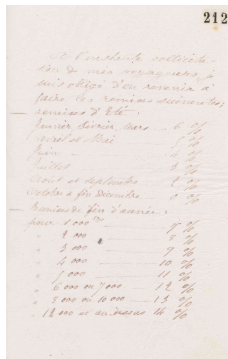 212
A l'instante sollicita-
tion de mes voyageurs, je
suis obligé d'en revenir à
faire les remises suivantes,
remises d'Eté.
Janvier Février, Mars 6 %
Avril et Mai %
Juin %
Juillet %
Août et Septembre %
Octobre à fin Décembre 0 %
Remises de fin d'année:
pour 1 000 7 %
" 2 000 8 %
" 3 000 9 %
" 4 000 10 %
" 5 000 11 %
" 6 000 ou 7 000 12 %
" 8 000 ou 10 000 13 %
" 12 000 et au dessus 14 %